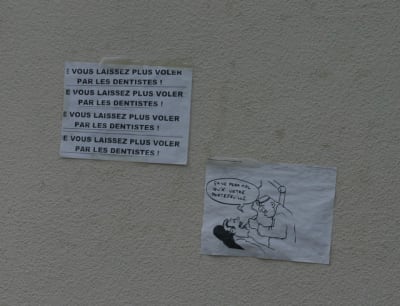 E VOUS LAISSEZ PLUS VOLER
PAR LES DENTISTES !
E VOUS LAISSEZ PLUS VOLER
PAR LES DENTISTES !
E VOUS LAISSEZ PLUS VOLER
PAR LES DENTISTES !
E VOUS LAISSEZ PLUS VOLER
PAR LES DENTISTES !
QU'A VOTRE
PORTEFEUILLE